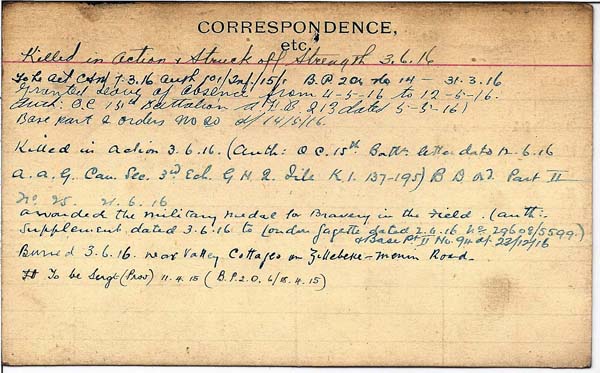 CORRESPONDENCE,
etc.
Killed in Action & Struck off Strength 3.6.16
To be Act CSM 7.3.16 Auth 101/Inf/15/1 B.P 2 Or. No 14 - 31.3.16
Granted leave of absence from 4-5-16 to 12-5-16.
Auth: O.C 15th Battalion A.F.B 213 dated 5-5-16)
Base part 2 orders No 20 d/14/5/16.
Killed in Action 3.6.16. (Auth: O C. 15th Battn letter dated 12.6.16
A.A.G. Can Sec. 3rd Ech. G H Q File K.1. 137-195) B D Ord. Part II
No. 25. 21.6.16
awarded the Military Medal for Bravery in the Field. (Auth:-
Supplement dated 3.6.16 to London Gazette dated 2.6.16 No 29608/5599)
& Base Pt II No. 94 d/ 23/12/16
Buried 3.6.16. near Valley Cottages on Zillebeke-Menin Road.
To be Sergt (Prov) 11.4.15 (B.P.2.O. 6/18.4.15)